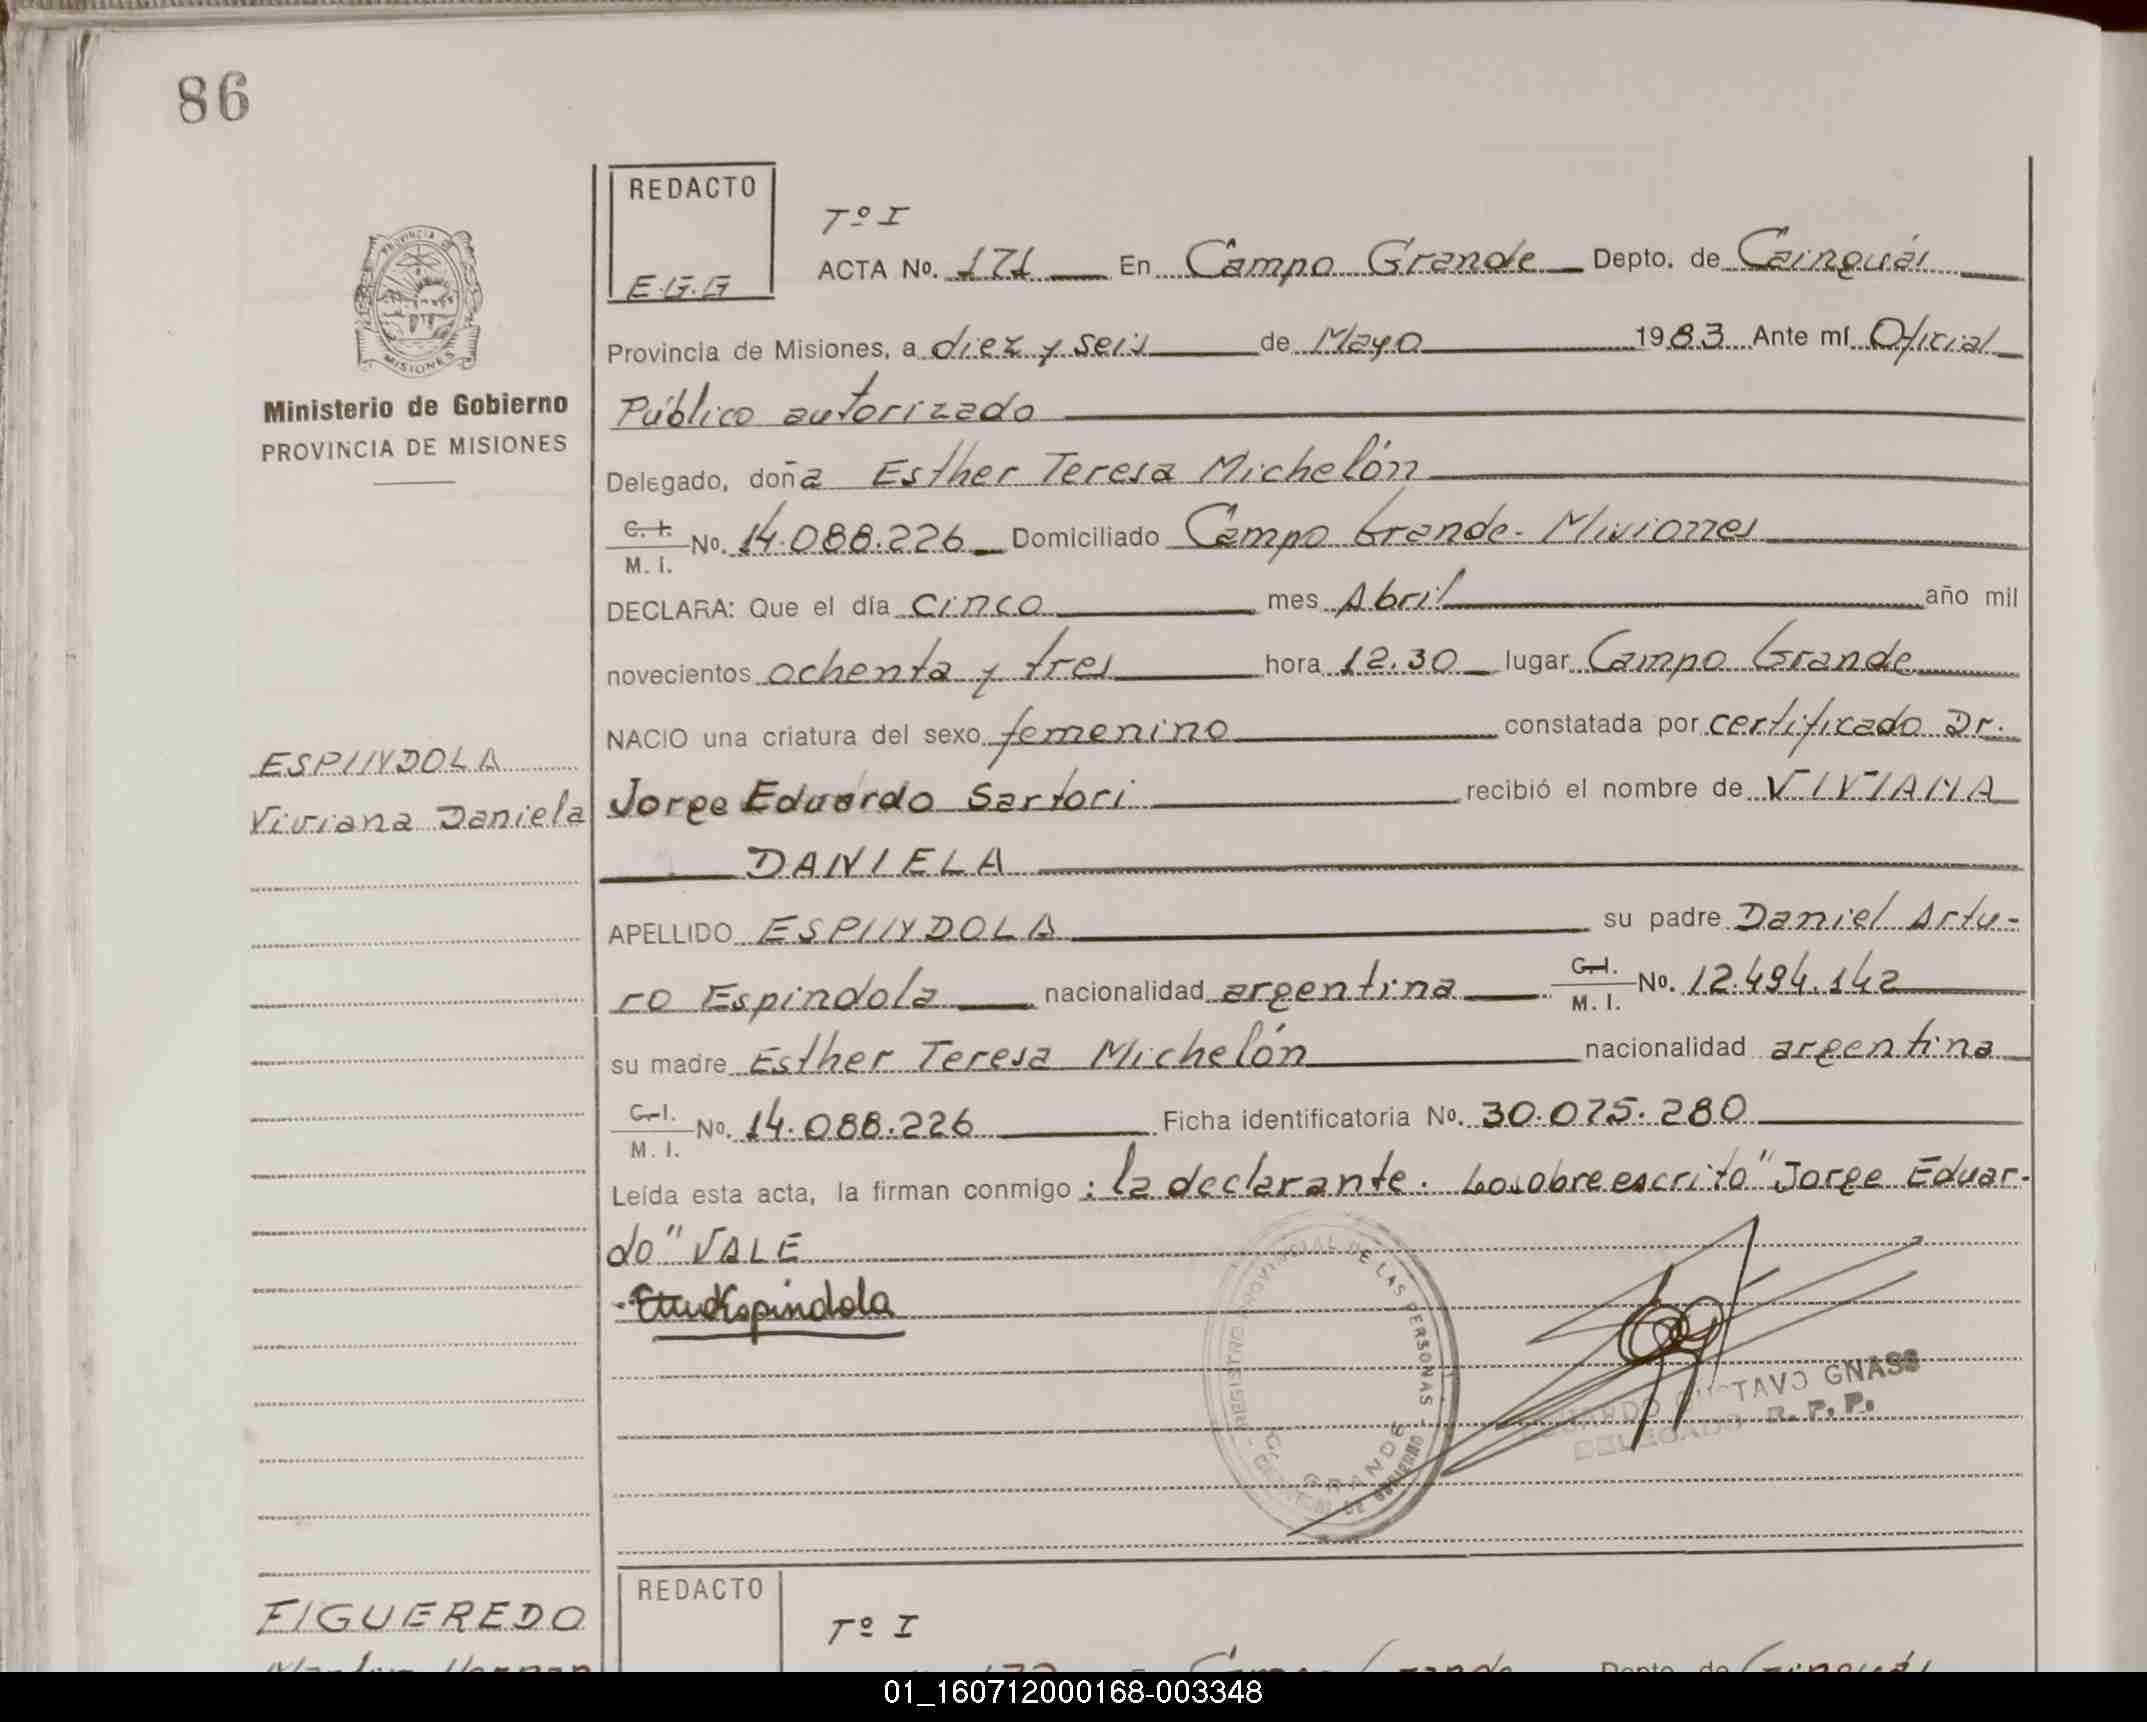 86
REDACTO
E.G.G
Tº I
ACTA No. 171 En Campo Grande Depto. de Cainguás
PROVINCIA DE MISIONES
Provincia de Misiones, a diez y seis de Mayo 1983 Ante mí Oficial
Ministerio de Gobierno
PROVINCIA DE MISIONES
Público autorizado
Delegado, doña Esther Teresa Michelón
C. I. M. I. No. 14.088.226 Domiciliado Campo Grande - Misiones
DECLARA: Que el día cinco mes Abril año mil
novecientos ochenta y tres hora 12.30 lugar Campo Grande
NACIO una criatura del sexo femenino constatada por certificado Dr.
ESPINDOLA
Viviana Daniela
Jorge Eduardo Sartori recibió el nombre de VIVIANA
DANIELA
APELLIDO ESPINDOLA su padre Daniel Artu-
ro Espindola nacionalidad argentina C.I. M. I. No. 12.494.142
su madre Esther Teresa Michelón nacionalidad argentina
C.I. M. I. No. 14.088.226 Ficha identificatoria No. 30.075.280
Leída esta acta, la firman conmigo: la declarante. Lo sobreescrito "Jorge Eduar-
do" VALE
Espindola
REGISTRO PROVINCIAL DE LAS PERSONAS
GRANDE
DE GOBIERNO
EDUARDO GUSTAVO GNASS
DELEGADO R.P.P.
FIGUEREDO
REDACTO
Tº I
01_160712000168-003348